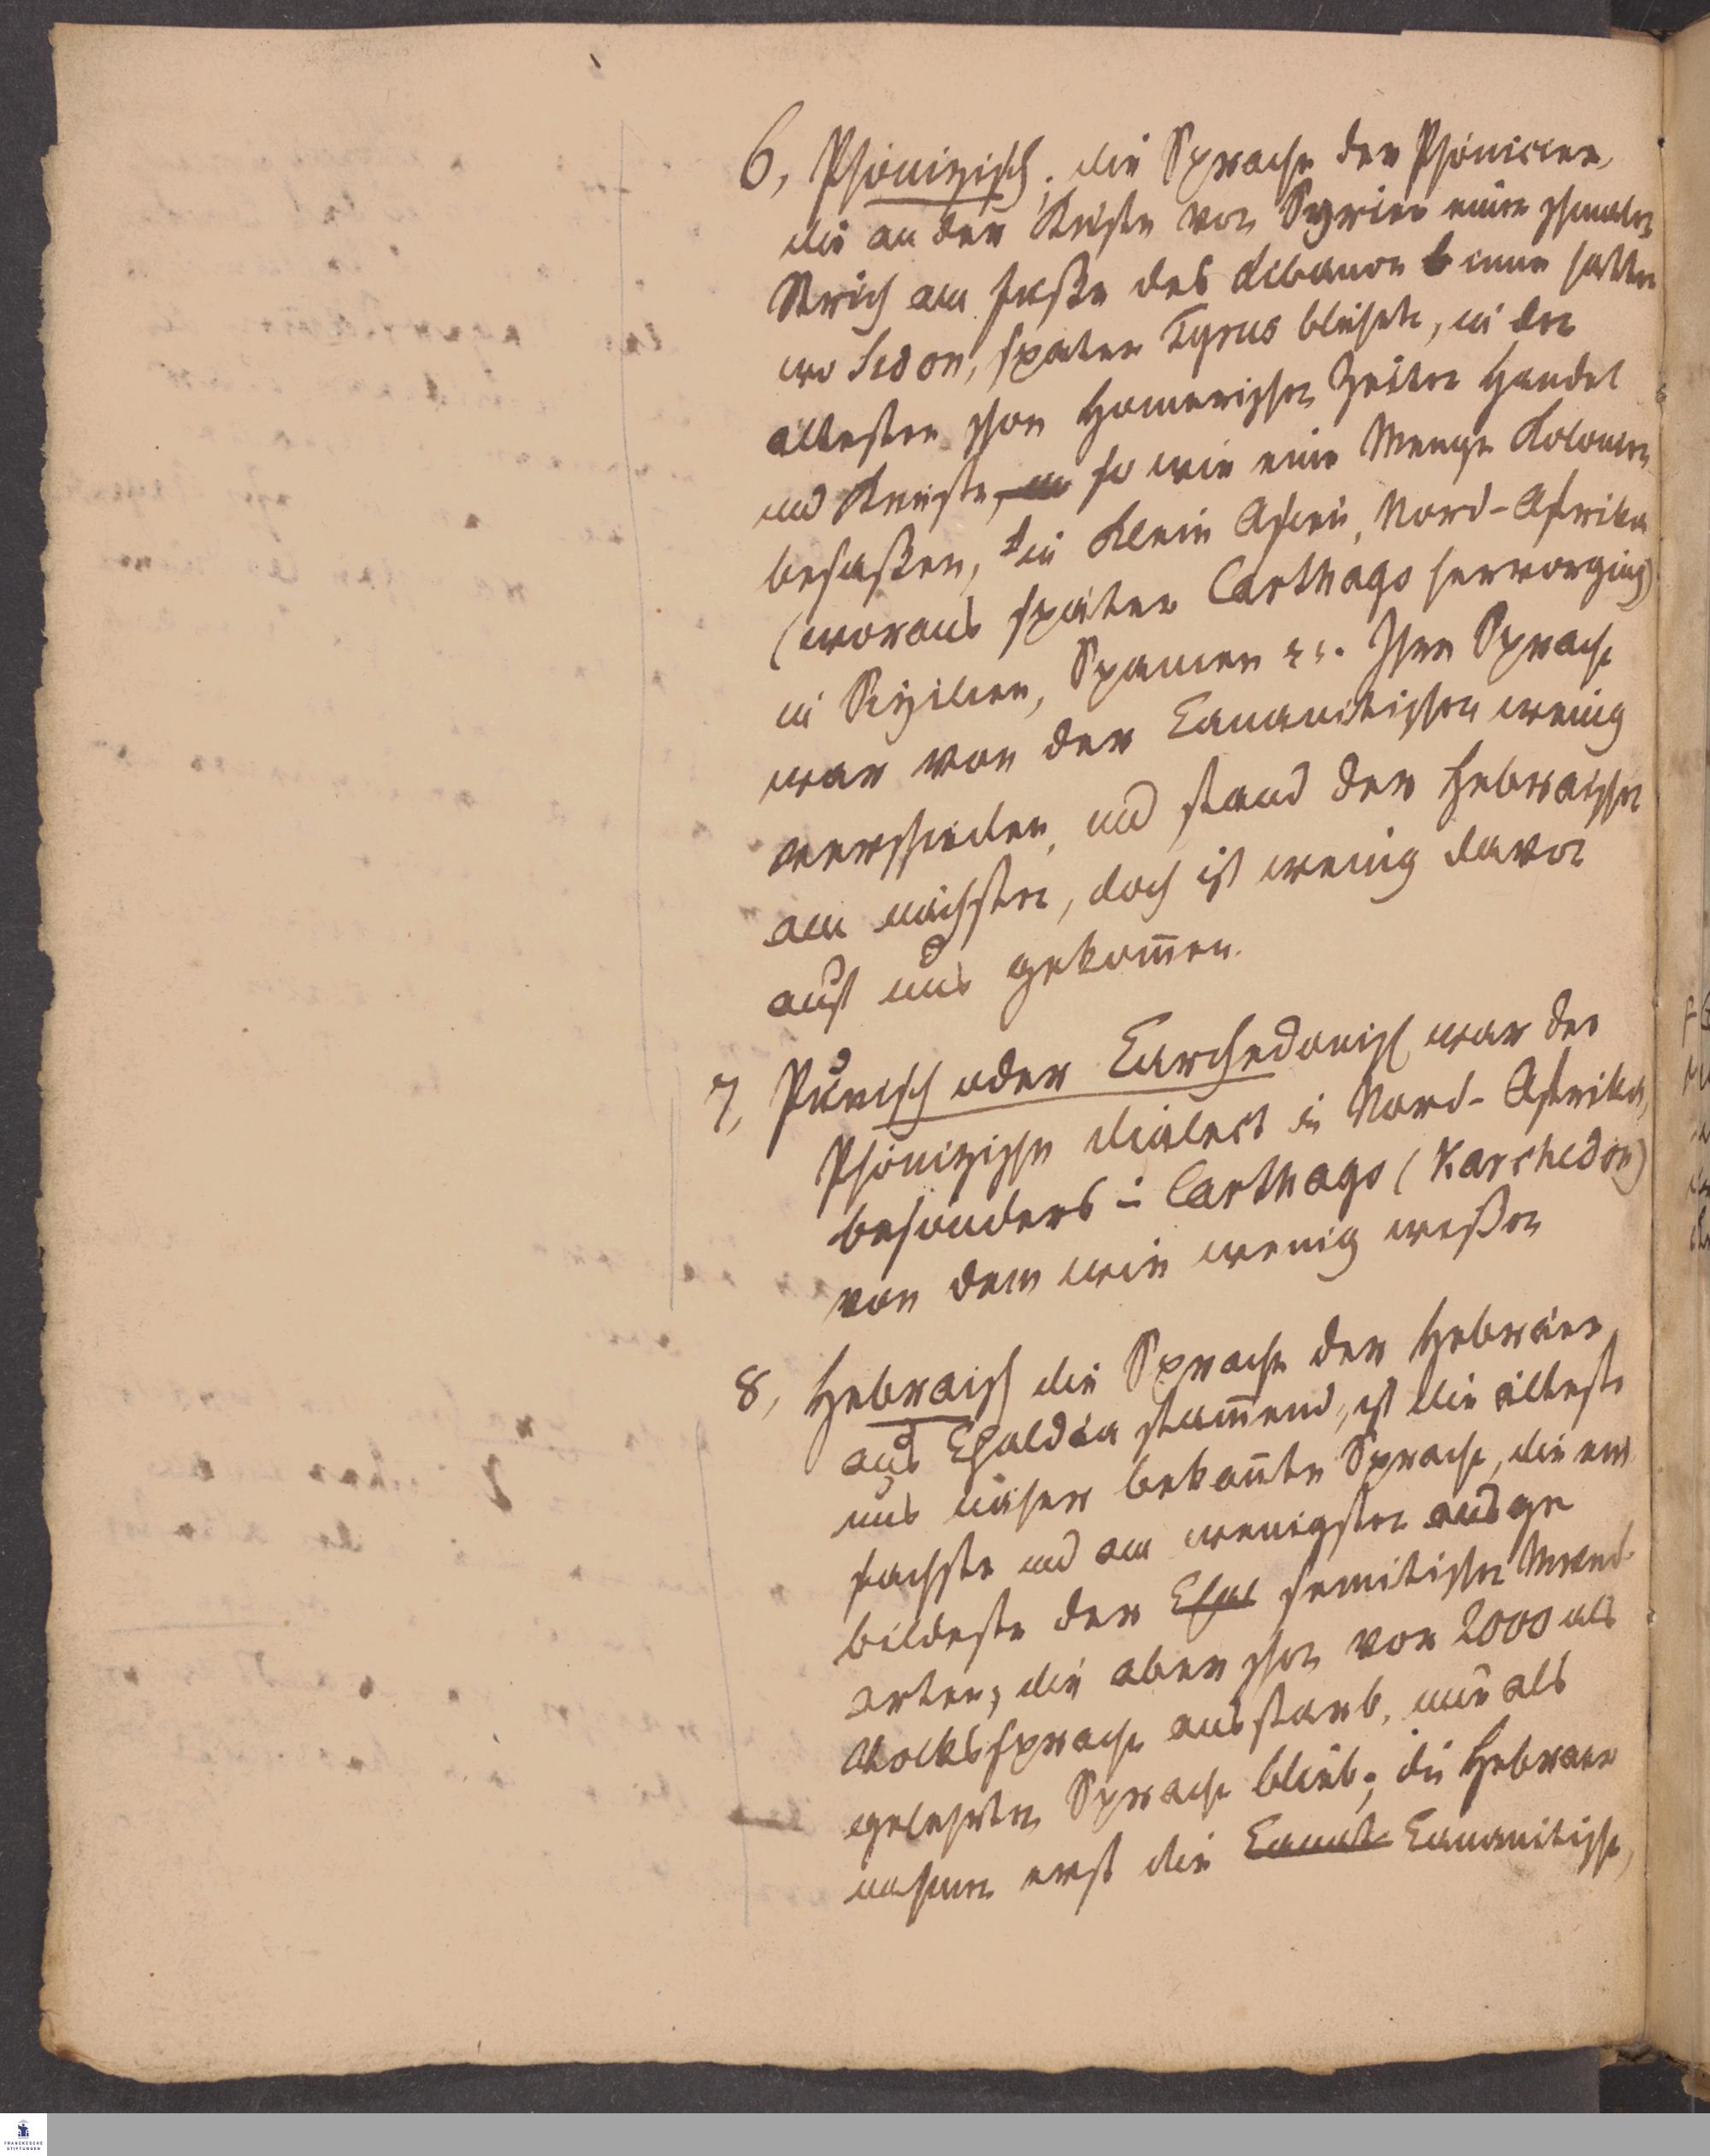 6, Phönizisch; die Sprache der Phönicier,
die an der Küste von Syrien einen schmalen
Strich am Fuße des Libanon inne hatten
wo Sidon, später Tyrus blühete, in den
ältesten schon Homerischen Zeiten Handel
und Künste, so wie eine Menge Kolonien
besaßen, in Klein Asien, Nord-Afrika
(woraus später Carthago hervorging)
in Sizilien, Spanien ꝛc. Ihre Sprache
war von der Cananitischen wenig
verschieden, und stand der Hebräischen
am nächsten, doch ist wenig davon
auf uns gekom̄en.
7, Punisch oder Carchedonisch war der
Phönizische Dialect in Nord-Afrika,
besonders in Carthago (Karchedon)
von dem wir wenig wißen
8, Hebräisch die Sprache der Hebräer,
aus Chaldäa stam̄end, ist die älteste
uns näher bekan̄te Sprache, die ein
fachste und am wenigsten ausge
bildeste der semitischen Mund-
arten, die aber schon vor 2000 als
Volkssprache ausstarb, nur als
gelehrten Sprache blieb; die Hebräer
nahmen erst die Cananitische,
FRANCKESCHE
STIFTUNGEN